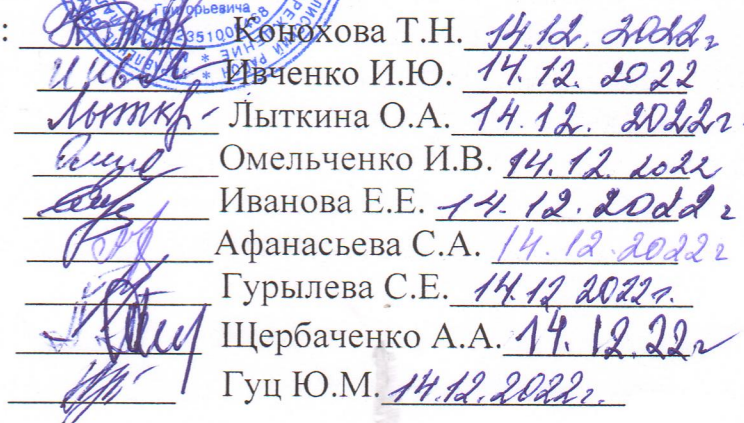 Григорьевича
: Конохова Т.Н. 14.12.2022г
Ивченко И.Ю. 14.12.2022
Лыткина О.А. 14.12.2022г.
Омельченко И.В. 14.12.2022
Иванова Е.Е. 14.12.2022г
Афанасьева С.А. 14.12.2022г
Гурылева С.Е. 14.12.2022г.
Щербаченко А.А. 14.12.22г
Гуц Ю.М. 14.12.2022г.